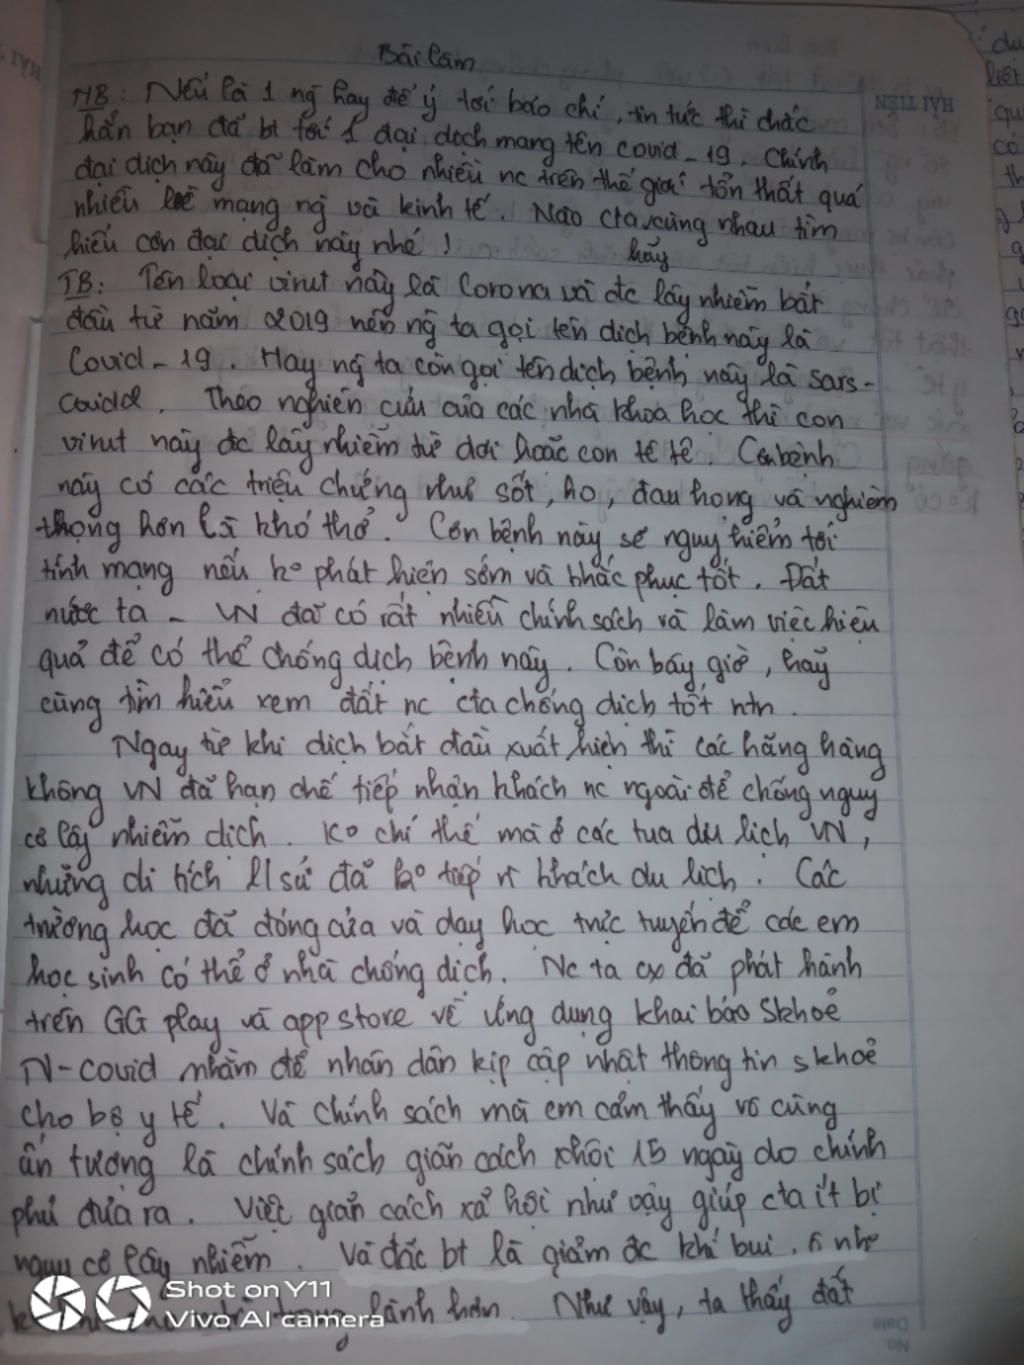 Bài làm
MB: Nếu là 1 ng hay để ý tới báo chí, tin tức thì chắc
hẳn bạn đã bt tới 1 đại dịch mang tên covid-19. Chính
đại dịch này đã làm cho nhiều nc trên thế giới tổn thất quá
nhiều mạng ng và kinh tế. Nào cta cùng nhau tìm
hiểu cơn đại dịch này nhé! hãy
TB: Tên loại virut này là Corona và đc lây nhiễm bắt
đầu từ năm 2019 nên ng ta gọi tên dịch bệnh này là
Covid-19. Hay ng ta còn gọi tên dịch bệnh này là sars-
Theo nghiên cứu của các nhà khoa học thì con
virut này đc lây nhiễm từ dơi hoặc con tê tê. Cơn bệnh
này có các triệu chứng như sốt, ho, đau họng và nghiêm
trọng hơn là khó thở. Cơn bệnh này sẽ nguy hiểm tới
tính mạng nếu ko phát hiện sớm và khắc phục tốt. Đất
nước ta - VN đã có rất nhiều chính sách và làm việc hiệu
quả để có thể chống dịch bệnh này. Còn bây giờ, hãy
cùng tìm hiểu xem đất nc cta chống dịch tốt ntn.
Ngay từ khi dịch bắt đầu xuất hiện thì các hãng hàng
không VN đã hạn chế tiếp nhận khách nc ngoài để chống nguy
cơ lây nhiễm dịch. Ko chỉ thế mà ở các tua du lịch VN,
những di tích l sử đã ko tiếp khách du lịch. Các
trường học đã đóng cửa và dạy học trực tuyến để các em
học sinh có thể ở nhà chống dịch. Nc ta cx đã phát hành
trên GG play và app store về ứng dụng khai báo skhoẻ
N-covid nhằm để nhân dân kịp cập nhật thông tin skhoẻ
cho bộ y tế. Và chính sách mà em cảm thấy vô cùng
ấn tượng là chính sách giãn cách xhội 15 ngày do chính
phủ đưa ra. Việc giãn cách xã hội như vậy giúp cta ít bị
nguy cơ lây nhiễm. Và đặc bt là giảm đc khí bụi,
lành hơn. Như vậy, ta thấy đất
Shot on Y11
Vivo AI camera
HẢI TIẾN
Date
No